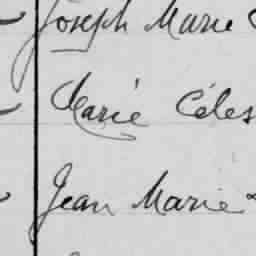 Joseph Marie
Marie Céles
Jean Marie